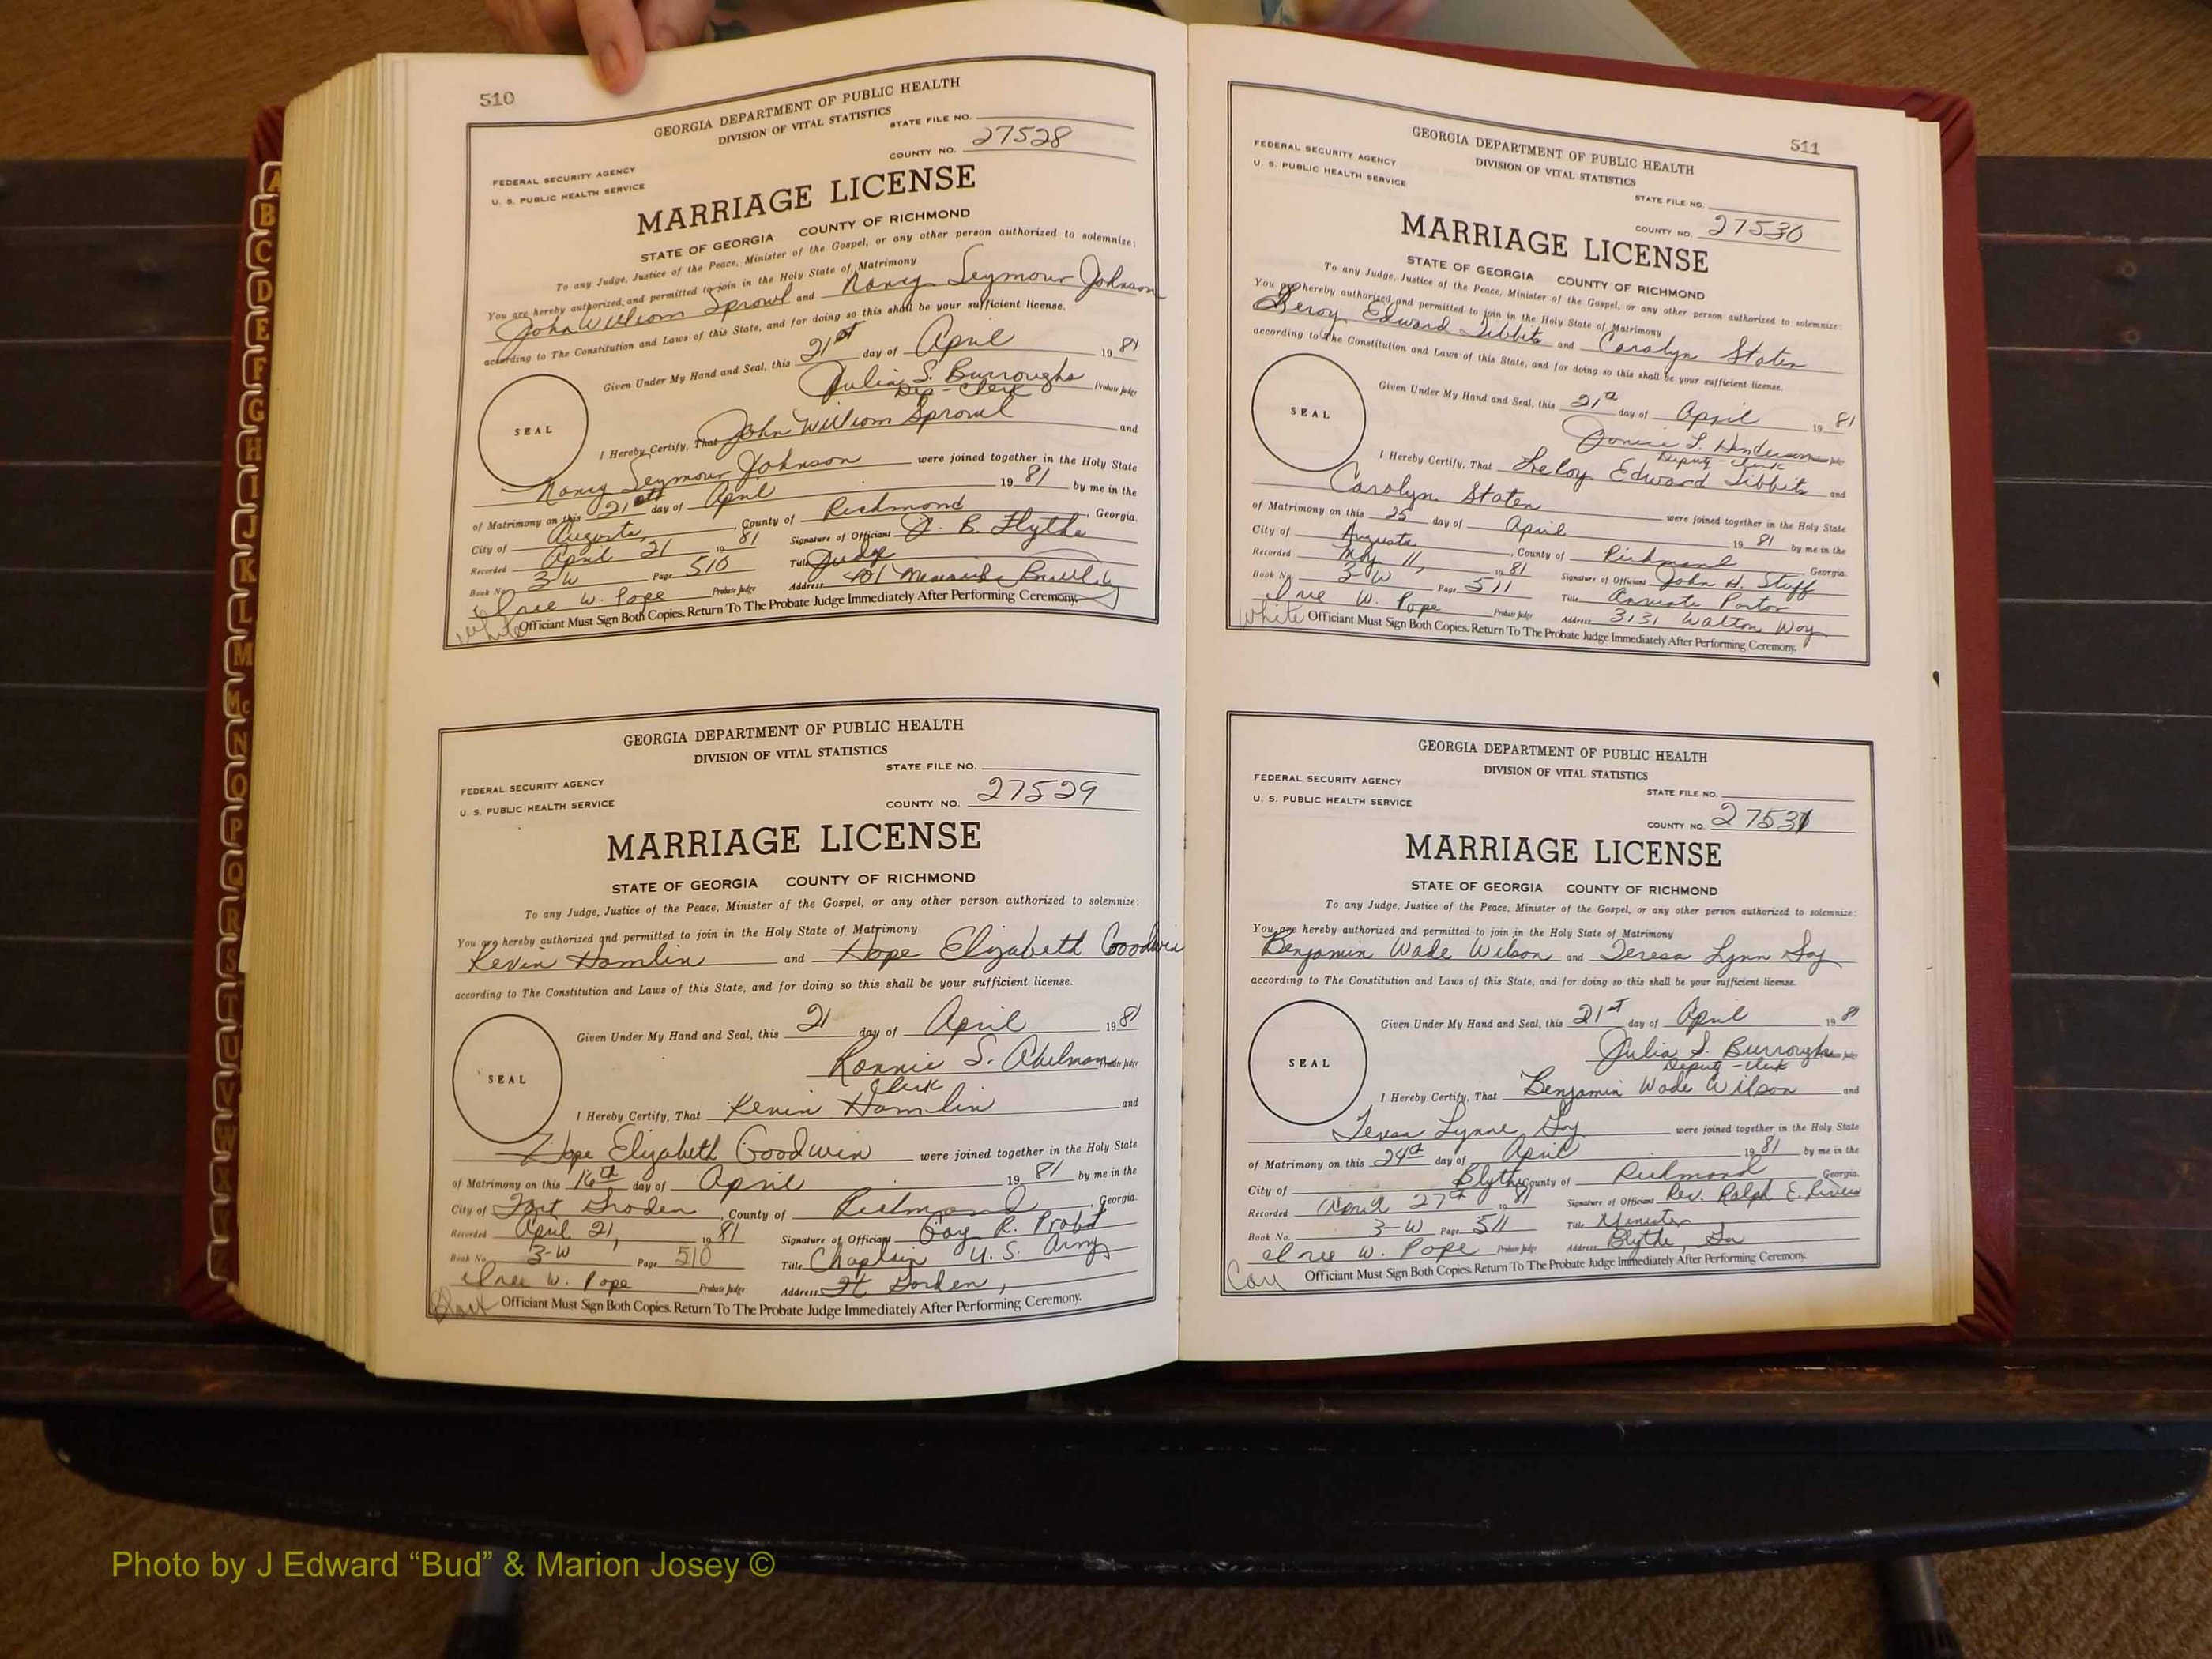 510
GEORGIA DEPARTMENT OF PUBLIC HEALTH
DIVISION OF VITAL STATISTICS
STATE FILE NO.
COUNTY NO. 27528
FEDERAL SECURITY AGENCY
U. S. PUBLIC HEALTH SERVICE
MARRIAGE LICENSE
STATE OF GEORGIA COUNTY OF RICHMOND
To any Judge, Justice of the Peace, Minister of the Gospel, or any other person authorized to solemnize:
You are hereby authorized and permitted to join in the Holy State of Matrimony
John William Sprowl and Nancy Seymour Johnson
according to The Constitution and Laws of this State, and for doing so this shall be your sufficient license.
Given Under My Hand and Seal, this 21st day of April 1981
Julia S. Burroughs Probate Judge
Dep-Clerk
SEAL
I Hereby Certify, That John William Sprowl and
Nancy Seymour Johnson were joined together in the Holy State
of Matrimony on this 21st day of April 1981 by me in the
City of Augusta, County of Richmond, Georgia.
Recorded April 21 1981 Signature of Officiant B. Flythe
Book No. 3-W Page 510 Title Judge
W. Pope Probate Judge Address 401
White Officiant Must Sign Both Copies. Return To The Probate Judge Immediately After Performing Ceremony.
GEORGIA DEPARTMENT OF PUBLIC HEALTH
DIVISION OF VITAL STATISTICS
STATE FILE NO.
FEDERAL SECURITY AGENCY
U. S. PUBLIC HEALTH SERVICE
COUNTY NO. 27529
MARRIAGE LICENSE
STATE OF GEORGIA COUNTY OF RICHMOND
To any Judge, Justice of the Peace, Minister of the Gospel, or any other person authorized to solemnize:
You are hereby authorized and permitted to join in the Holy State of Matrimony
Kevin Hamlin and Hope Elizabeth Goodwin
according to The Constitution and Laws of this State, and for doing so this shall be your sufficient license.
Given Under My Hand and Seal, this 21 day of April 1981
Konnie S. Probate Judge
Clerk
SEAL
I Hereby Certify, That Kevin Hamlin and
Hope Elizabeth Goodwin were joined together in the Holy State
of Matrimony on this 16th day of April 1981 by me in the
City of Fort Groden, County of Richmond, Georgia.
Recorded April 21, 1981 Signature of Officiant Gay R. Probst
Book No. 3-W Page 510 Title Chaplain U.S. Army
W. Pope Probate Judge Address Ft Gorden,
Black Officiant Must Sign Both Copies. Return To The Probate Judge Immediately After Performing Ceremony.
511
GEORGIA DEPARTMENT OF PUBLIC HEALTH
DIVISION OF VITAL STATISTICS
FEDERAL SECURITY AGENCY
U. S. PUBLIC HEALTH SERVICE
STATE FILE NO.
COUNTY NO. 27530
MARRIAGE LICENSE
STATE OF GEORGIA COUNTY OF RICHMOND
To any Judge, Justice of the Peace, Minister of the Gospel, or any other person authorized to solemnize:
You are hereby authorized and permitted to join in the Holy State of Matrimony
Leroy Edward Tibbits and Carolyn Staten
according to The Constitution and Laws of this State, and for doing so this shall be your sufficient license.
Given Under My Hand and Seal, this 21st day of April 1981
Henderson Judge
Deputy-Clerk
SEAL
I Hereby Certify, That LeRoy Edward Tibbits and
Carolyn Staten were joined together in the Holy State
of Matrimony on this 25 day of April 1981 by me in the
City of Augusta, County of Richmond Georgia.
Recorded May 11, 1981 Signature of Officiant John H. Stuff
Book No. 3-W Page 511 Title Associate Pastor
W. Pope Probate Judge Address 3131 Walton Way
White Officiant Must Sign Both Copies. Return To The Probate Judge Immediately After Performing Ceremony.
GEORGIA DEPARTMENT OF PUBLIC HEALTH
DIVISION OF VITAL STATISTICS
FEDERAL SECURITY AGENCY
U. S. PUBLIC HEALTH SERVICE
STATE FILE NO.
COUNTY NO. 27531
MARRIAGE LICENSE
STATE OF GEORGIA COUNTY OF RICHMOND
To any Judge, Justice of the Peace, Minister of the Gospel, or any other person authorized to solemnize:
You are hereby authorized and permitted to join in the Holy State of Matrimony
Benjamin Wade Wilson and Teresa Lynn
according to The Constitution and Laws of this State, and for doing so this shall be your sufficient license.
Given Under My Hand and Seal, this 21st day of April 1981
Julia S. Burroughs Probate Judge
Deputy-Clerk
SEAL
I Hereby Certify, That Benjamin Wade Wilson and
Teresa Lynne were joined together in the Holy State
of Matrimony on this 24th day of April 1981 by me in the
City of Blythe County of Richmond Georgia.
Recorded April 27th 1981 Signature of Officiant Rev. Ralph E. Rivers
Book No. 3-W Page 511 Title Minister
W. Pope Probate Judge Address Blythe, Ga
Cau Officiant Must Sign Both Copies. Return To The Probate Judge Immediately After Performing Ceremony.
A
B
C
D
E
F
G
H
I
J
K
L
M
Mc
N
O
P
Q
R
S
T
U
V
W
Photo by J Edward “Bud” & Marion Josey ©